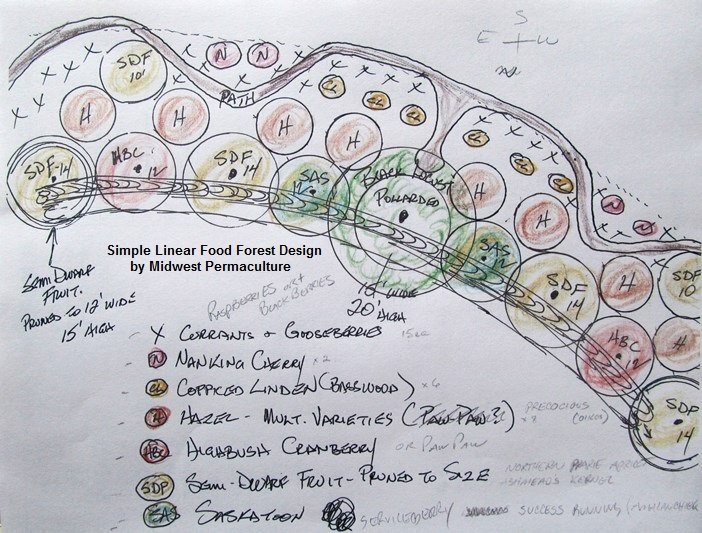 S
E W
N
SDF 10'
N N
PATH
CL CL CL CL
H H H H
CL CL CL
SDF 14
HBC 12
SDF 14
SAS 12
BLACK LOCUST
POLLARDED
H
H
N
N
SAS 12
SDF 14
H
SDF 10
HBC 12
H
SDF 14
Simple Linear Food Forest Design
by Midwest Permaculture
SEMI DWARF
FRUIT.
PRUNED TO 12' WIDE
15' HIGH
WIDE
20' HIGH
RASPBERRIES
BLACKBERRIES
X CURRANTS & GOOSEBERRIES
N NANKING CHERRY x2
CL COPPICED LINDEN (BASSWOOD) x6
H HAZEL - MULT. VARIETIES (PAW PAW?) PRECOCIOUS
HBC HIGHBUSH CRANBERRY OR PAW PAW
SDF SEMI-DWARF FRUIT - PRUNED TO SIZE NORTHERN
KERNEL
SAS SASKATOON SERVICEBERRY SUCCESS RUNNING